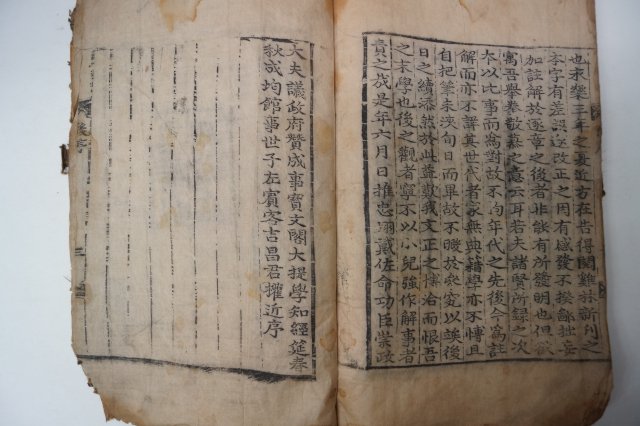 也永樂元年之夏近方在告得閱雞林新刊之
本字有差誤逐改正之因有感發不揆鄙拙妄
加註解於逐章之後者非能有所發明也但欲
寓吾拳拳敬慕之意云耳若夫諸賢所錄之次
本以比事而為對故不向年代之先後今為註
解而亦不詳其世代者家無典籍學亦不博且
自把筆未浹旬日而畢故不暇於參究以竢後
日之續添然於此益歎我文正之博洽而恨吾
之末學也後之觀者寧不以小兒強作解事者
責之哉是年六月日推忠翊戴佐命功臣崇政
大夫議政府贊成事寶文閣大提學知經筵春
秋成均館事世子左賓客吉昌君權近序
序